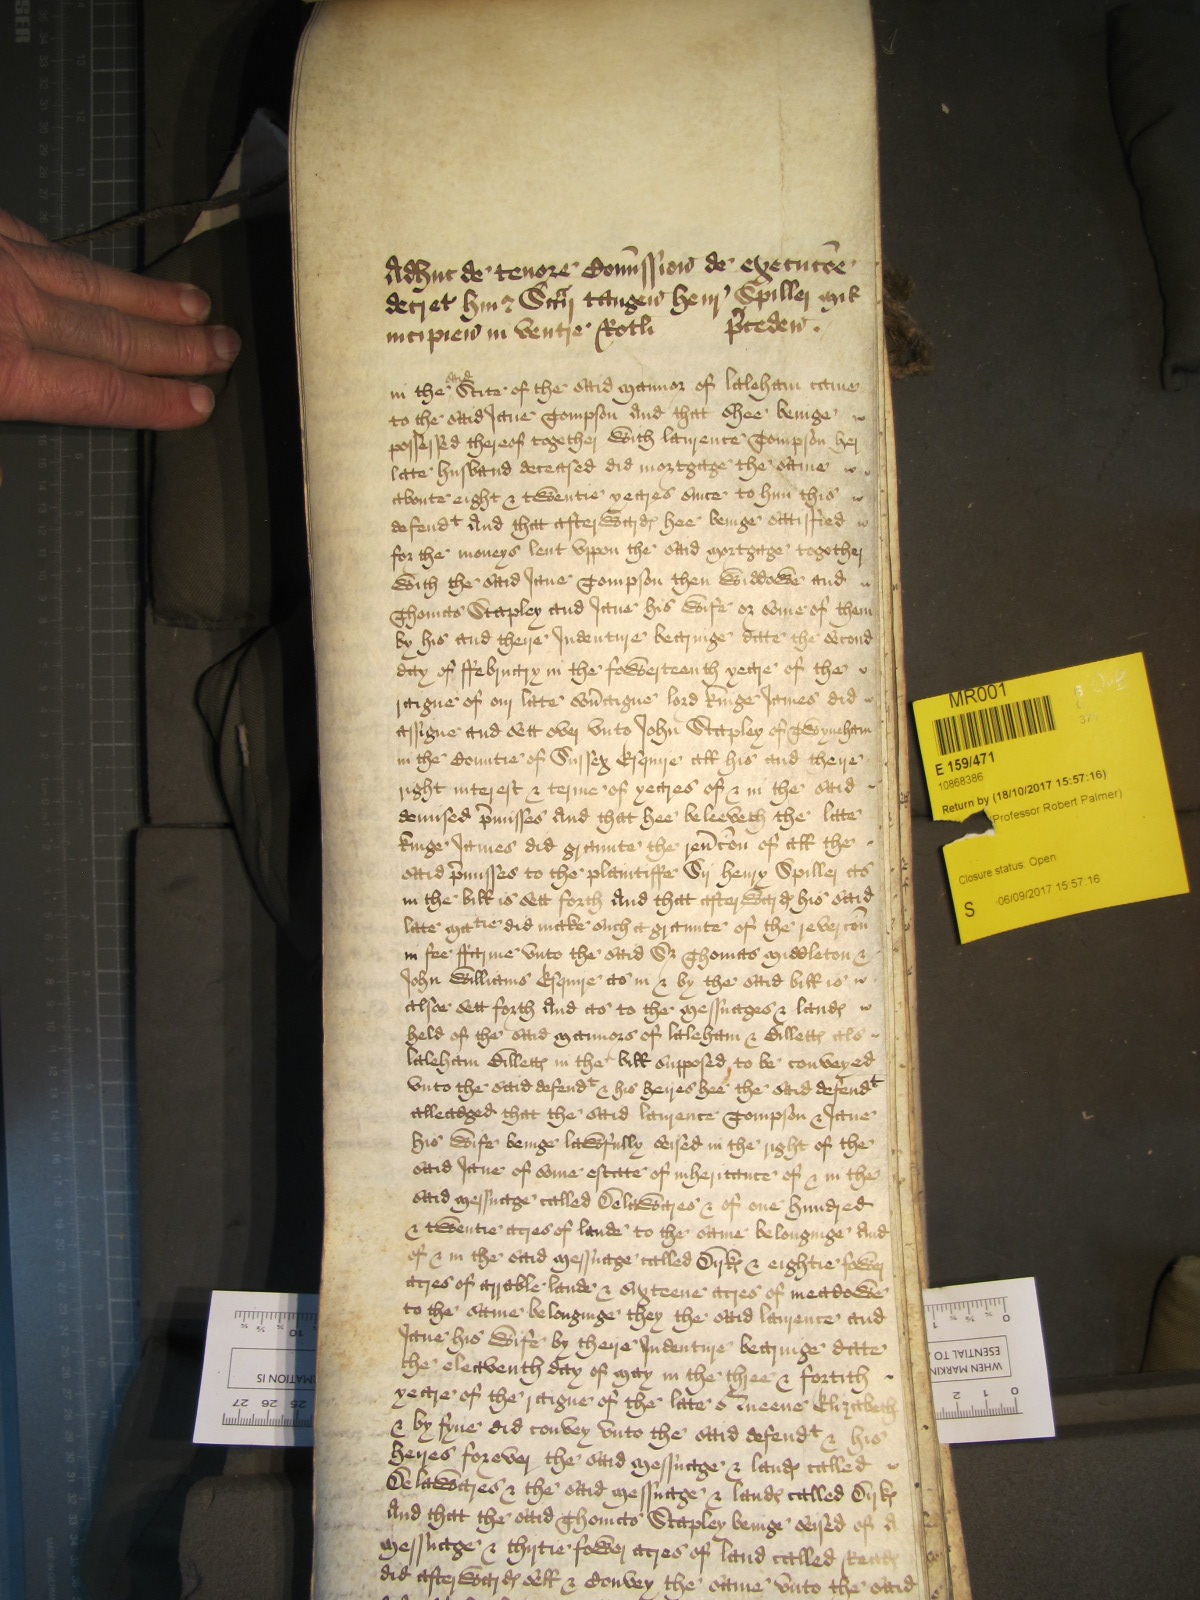 Adhuc de tenore Comission de executōe
decret hui9 Scc͞ij tangen henr' Spiller mił
incipien in ventre Rotli p͞ceden .
in the and Scite of the said mannor of laleham came
to the said Jane Tompson And that shee beinge
possessed thereof together with laurence Tompson her
late husband deceased did mortgage the same
aboute eight & twentie yeares since to him this
defendt And that afterwards hee beinge satisfied
for the moneys lent vppon the said mortgage together
with the said Jane Tompson then widdowe and
Thomas Stapley and Jane his wife or some of them
by his and theire Indenture bearinge date the second
day of ffebruary in the fowerteenth yeare of the
raigne of our late sov͞aigne lord kinge James did
assigne and sett over vnto John Stapley of Twyneham
in the Countie of Sussex Esquire all his and theire
right interest & terme of yeares of & in the said
demised p͞misses And that hee beleeveth the late
kinge James did graunte the reuc͞on of all the
said p͞misses to the plaintiffe Sir henry Spiller as
in the bill is sett forth And that afterwards his said
late matie did make such a graunte of the revercon
in fee ffarme vnto the said Sr Thomas Middleton &
John Williams Esquire as in & by the said bill is
alsoe sett forth And as to the messuages & lands
held of the said mannors of laleham & Billetts als
laleham Billetts in the bill supposed to be conveyed
vnto the said defendt & his heires hee the said defendt
alleadged that the said laurence Tompson & Jane
his wife beinge lawfully seised in the right of the
said Jane of some estate of inheritance of & in the
said messuage called Delawares & of one hundred
& twentie acres of lande to the same belonginge And
of & in the said messuage called Dirks & eightie fower
acres of arrable lande & sixteene acres of meadowe
to the same belonginge they the said laurence and
Jane his wife by theire Indenture bearinge date
the eleaventh day of May in the three & fortith
yeare of the raigne of the late Queene Elizabeth
& by fyne did convey vnto the said defendt & his
heires forever the said messuage & lands called
Delawares & the said messuage & lands called Dirks
And that the said Thomas Stapley beinge seised of A
messuage & thirtie fower acres of land called
did afterwards sell & Convey the same vnto the said
MR001
E 159/471
10868386
Return by (18/10/2017 15:57:16)
(Professor Robert Palmer)
Closure status: Open
S 06/09/2017 15:57:16
WHEN MARKIN
ESENTIAL TO
RMATION IS
27 26 25
2 1 0